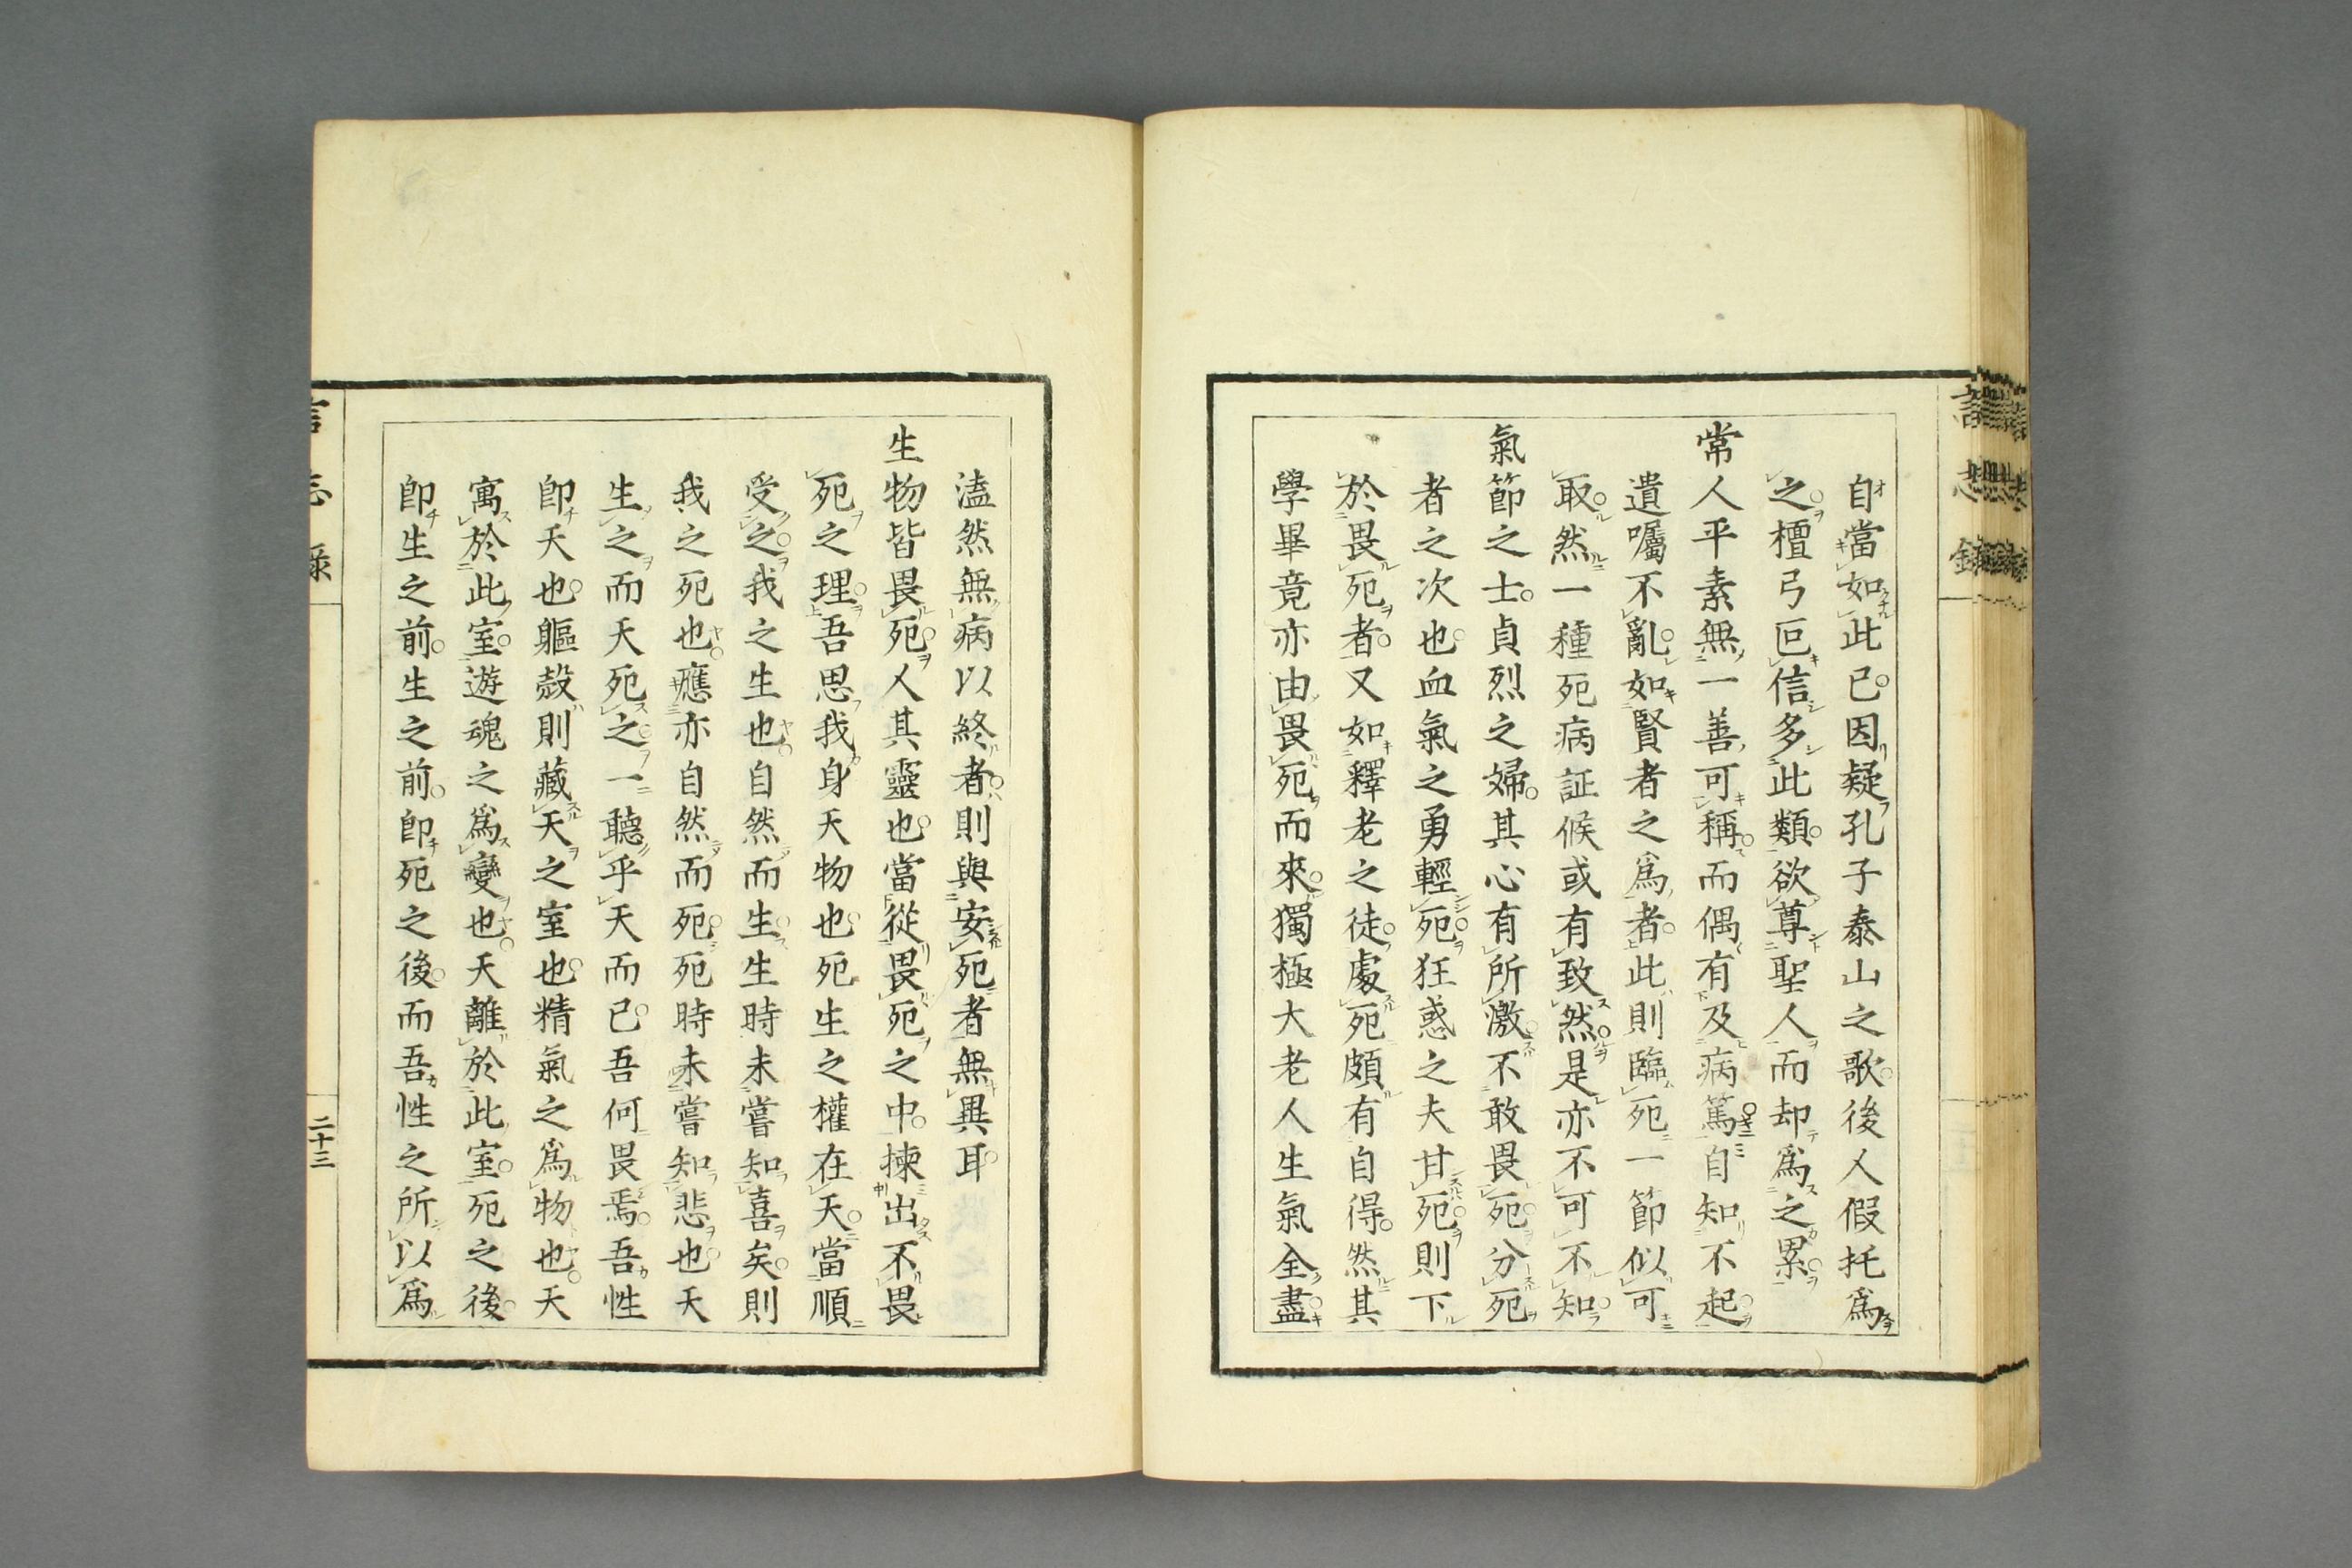 言志録
自當如此已因疑孔子泰山之歌後人假托爲
之檀弓叵信多此類欲尊聖人而却爲之累
常人平素無一善可稱而偶有及病篤自知不起
遺囑不亂如賢者之爲者此則臨死一節似可
取然一種死病証候或有致然是亦不可不知
氣節之士貞烈之婦其心有所激不敢畏死分死
者之次也血氣之勇輕死狂惑之夫甘死則下
於畏死者又如釋老之徒處死頗有自得然其
學畢竟亦由畏死而來獨極大老人生氣全盡
溘然無病以終者則與安死者無異耳
生物皆畏死人其靈也當從畏死之中揀出不畏
死之理吾思我身天物也死生之權在天當順
受之我之生也自然而生生時未嘗知喜矣則
我之死也應亦自然而死死時未嘗知悲也天
生之而天死之一聽乎天而已吾何畏焉吾性
卽天也軀殼則藏天之室也精氣之爲物也天
寓於此室遊魂之爲變也天離於此室死之後
卽生之前生之前卽死之後而吾性之所以爲
言志録
二十三